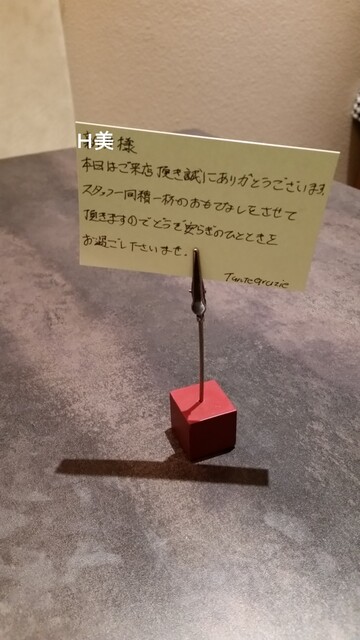 H美様
本日はご来店頂き誠にありがとうございます。
スタッフ一同精一杯のおもてなしをさせて
頂きますのでどうぞ安らぎのひとときを
お過ごし下さいませ。
Tante Grazie